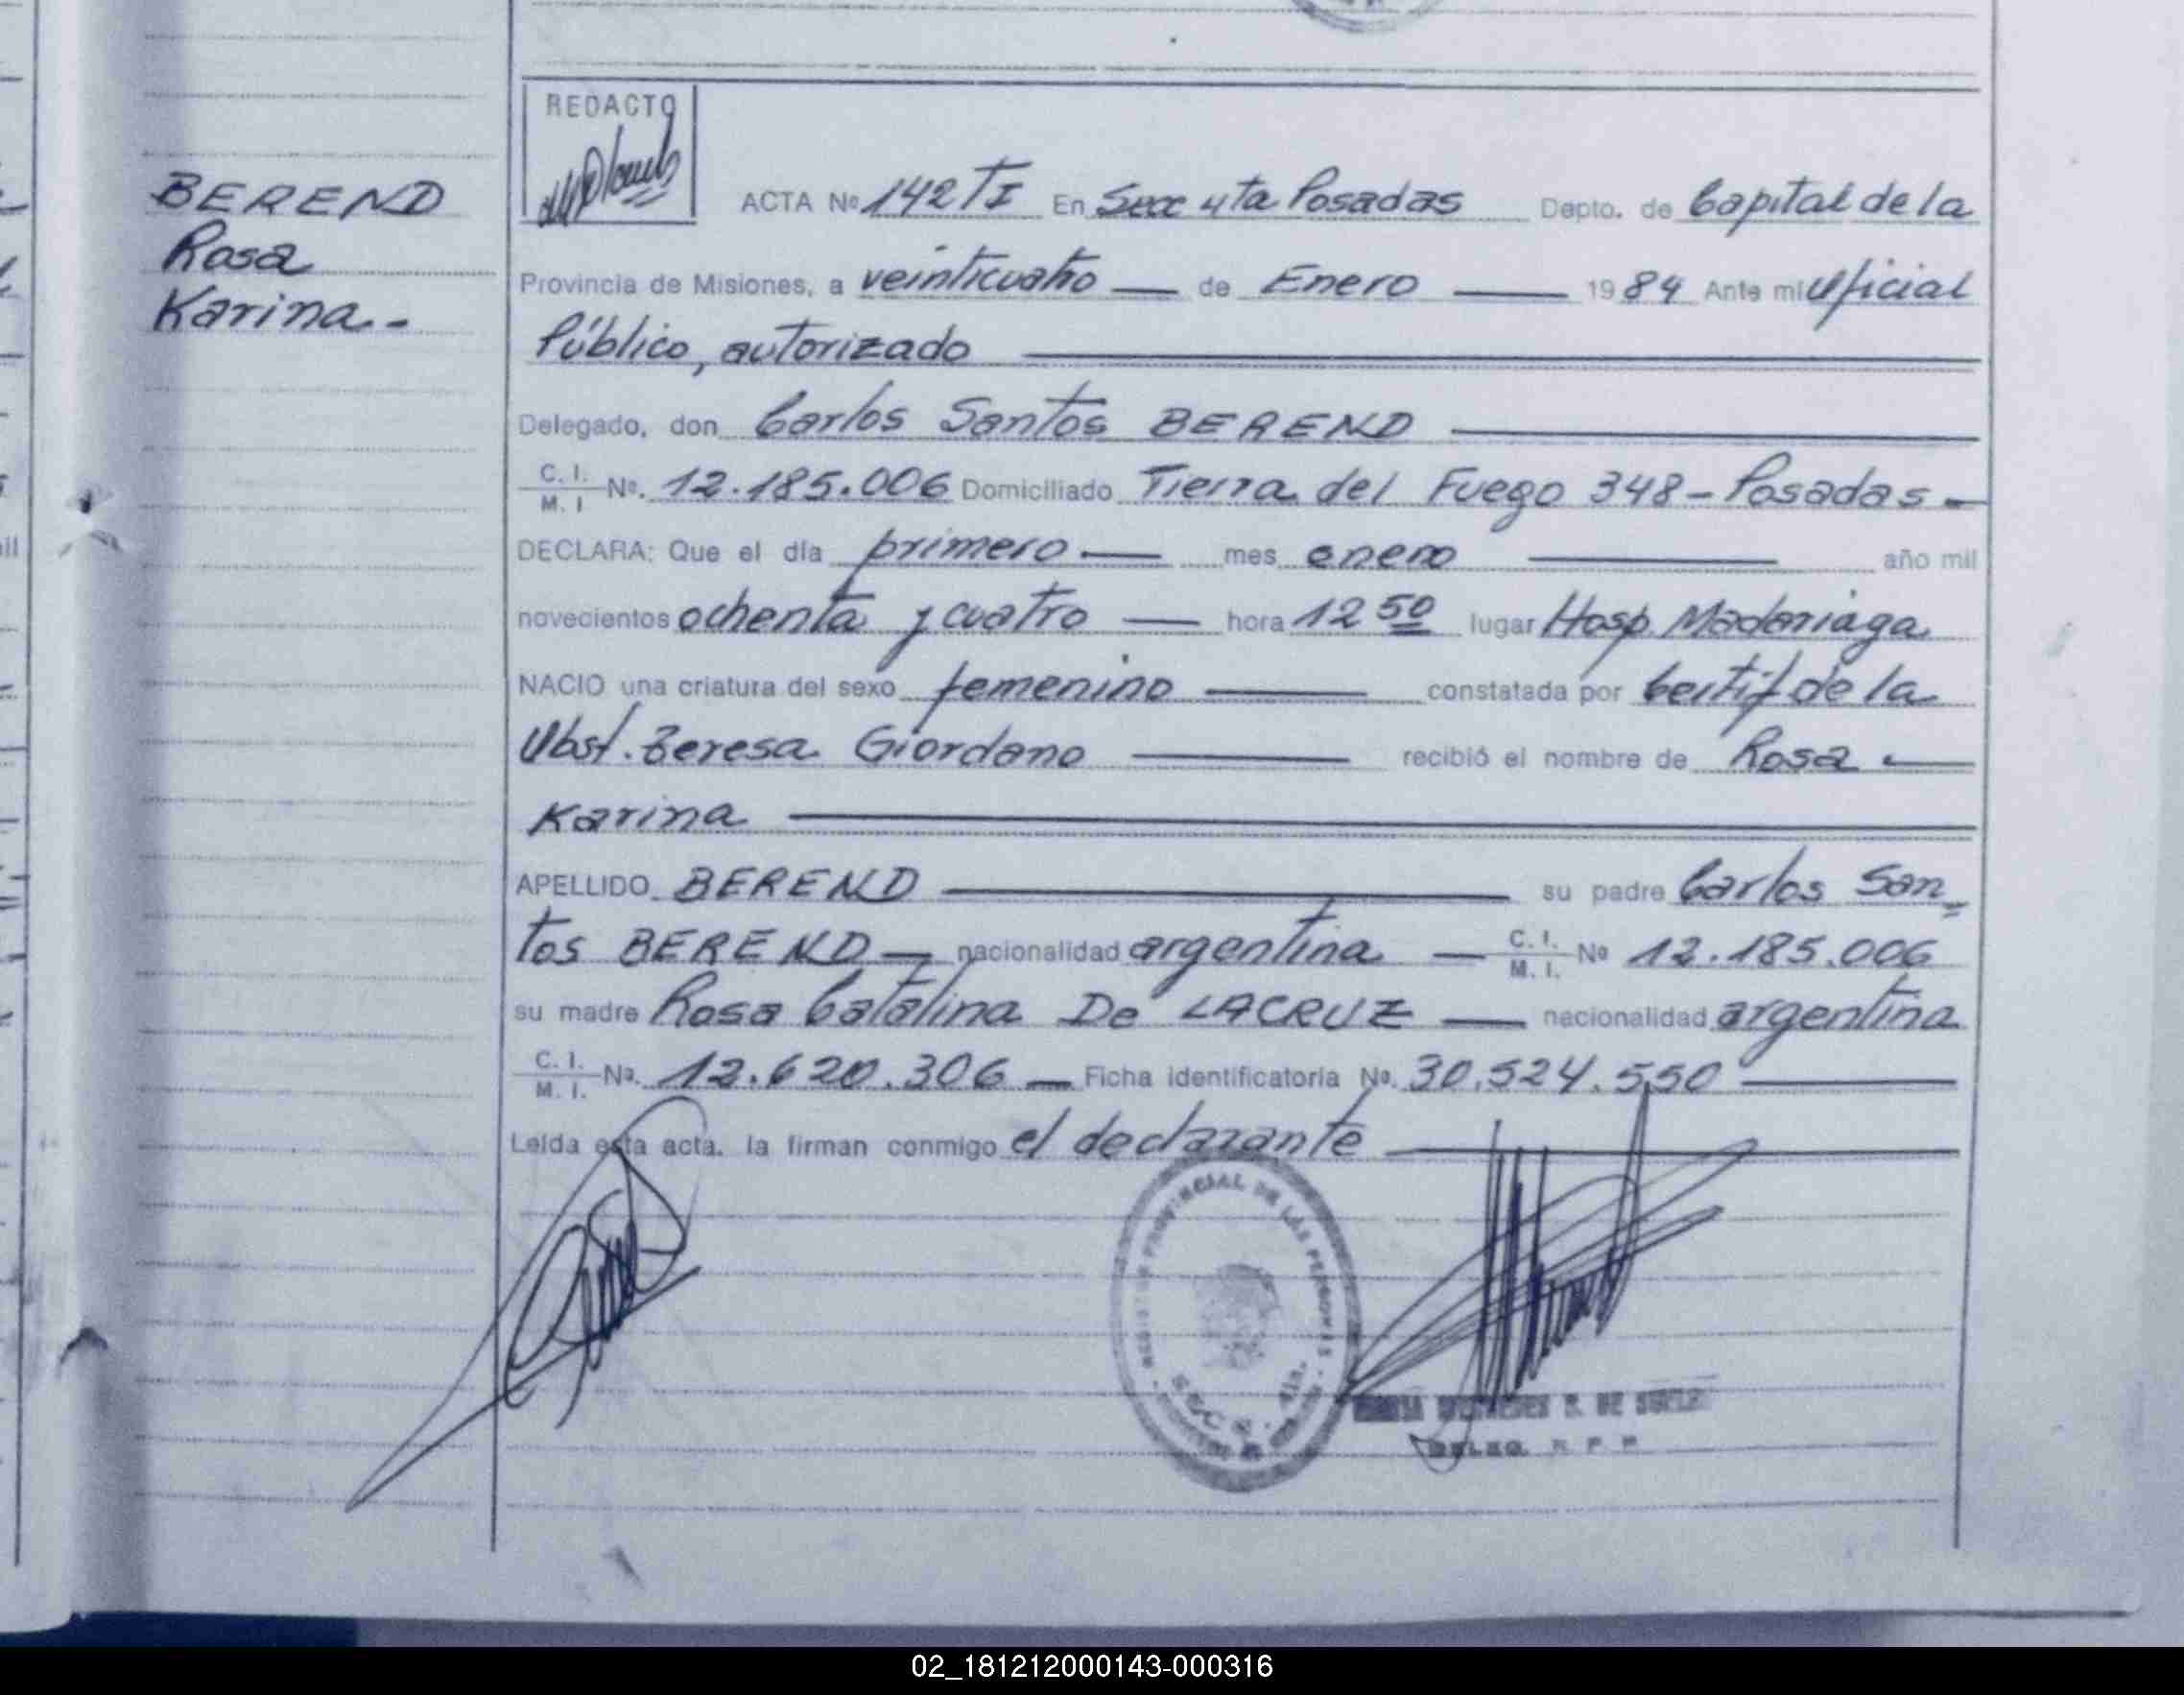 REDACTO
BEREND
Rosa
Karina.-
ACTA Nº 142 TI En Secc 4ta Posadas Depto. de Capital de la
Provincia de Misiones, a veinticuatro — de Enero — 1984 Ante mi Oficial
Público, autorizado
Delegado, don Carlos Santos BEREND
C. I. / M. I Nº. 12.185.006 Domiciliado Tierra del Fuego 348 - Posadas -
DECLARA: Que el día primero — mes enero — año mil
novecientos ochenta y cuatro — hora 12 50 lugar Hosp. Madariaga
NACIO una criatura del sexo femenino — constatada por Certif de la
Obst. Teresa Giordano — recibió el nombre de Rosa —
Karina
APELLIDO BEREND — su padre Carlos San=
tos BEREND — nacionalidad argentina — C. I. / M. I. Nº 12.185.006
su madre Rosa Catalina De LACRUZ — nacionalidad argentina
C. I. / M. I. Nº. 12.620.306 — Ficha identificatoria Nº. 30.524.550
Leída esta acta. la firman conmigo el declarante
PROVINCIAL DE LAS PERSONAS
SECC. 4ta.
DE
DELEG. R P P
02_181212000143-000316